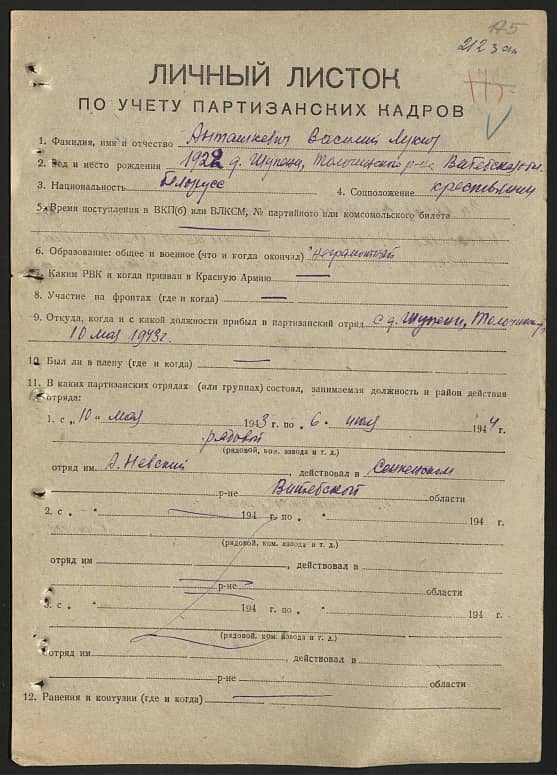 А5
212 з оп
145
ЛИЧНЫЙ ЛИСТОК
ПО УЧЕТУ ПАРТИЗАНСКИХ КАДРОВ
1. Фамилия, имя и отчество Анташкевич Василий Лукич
2. Год и место рождения 1922 д. Шупени, Толочинского р-на Витебской обл.
3. Национальность белорусс 4. Соцположение крестьянин
5. Время поступления в ВКП(б) или ВЛКСМ, № партийного или комсомольского билета
6. Образование: общее и военное (что и когда окончил) неграмотный
7. Каким РВК и когда призван в Красную Армию —
8. Участие на фронтах (где и когда) —
9. Откуда, когда и с какой должности прибыл в партизанский отряд с д. Шупени, Толочинск.
10 мая 1943г.
10. Был ли в плену (где и когда) —
11. В каких партизанских отрядах (или группах) состоял, занимаемая должность и район действия
отряда:
1. с „10" мая 1943 г. по „6" июля 1944 г.
рядовой
(рядовой, ком. взвода и т. д.)
отряд им. А. Невский, действовал в Сенненском
р-не Витебской области
2. с „ " 194 г. по „ " 194 г.
(рядовой, ком. взвода и т. д.)
отряд им , действовал в
р-не области
3. с „ " 194 г. по „ " 194 г.
(рядовой, ком. взвода и т. д.)
отряд им , действовал в
р-не области
12. Ранения и контузии (где и когда) —